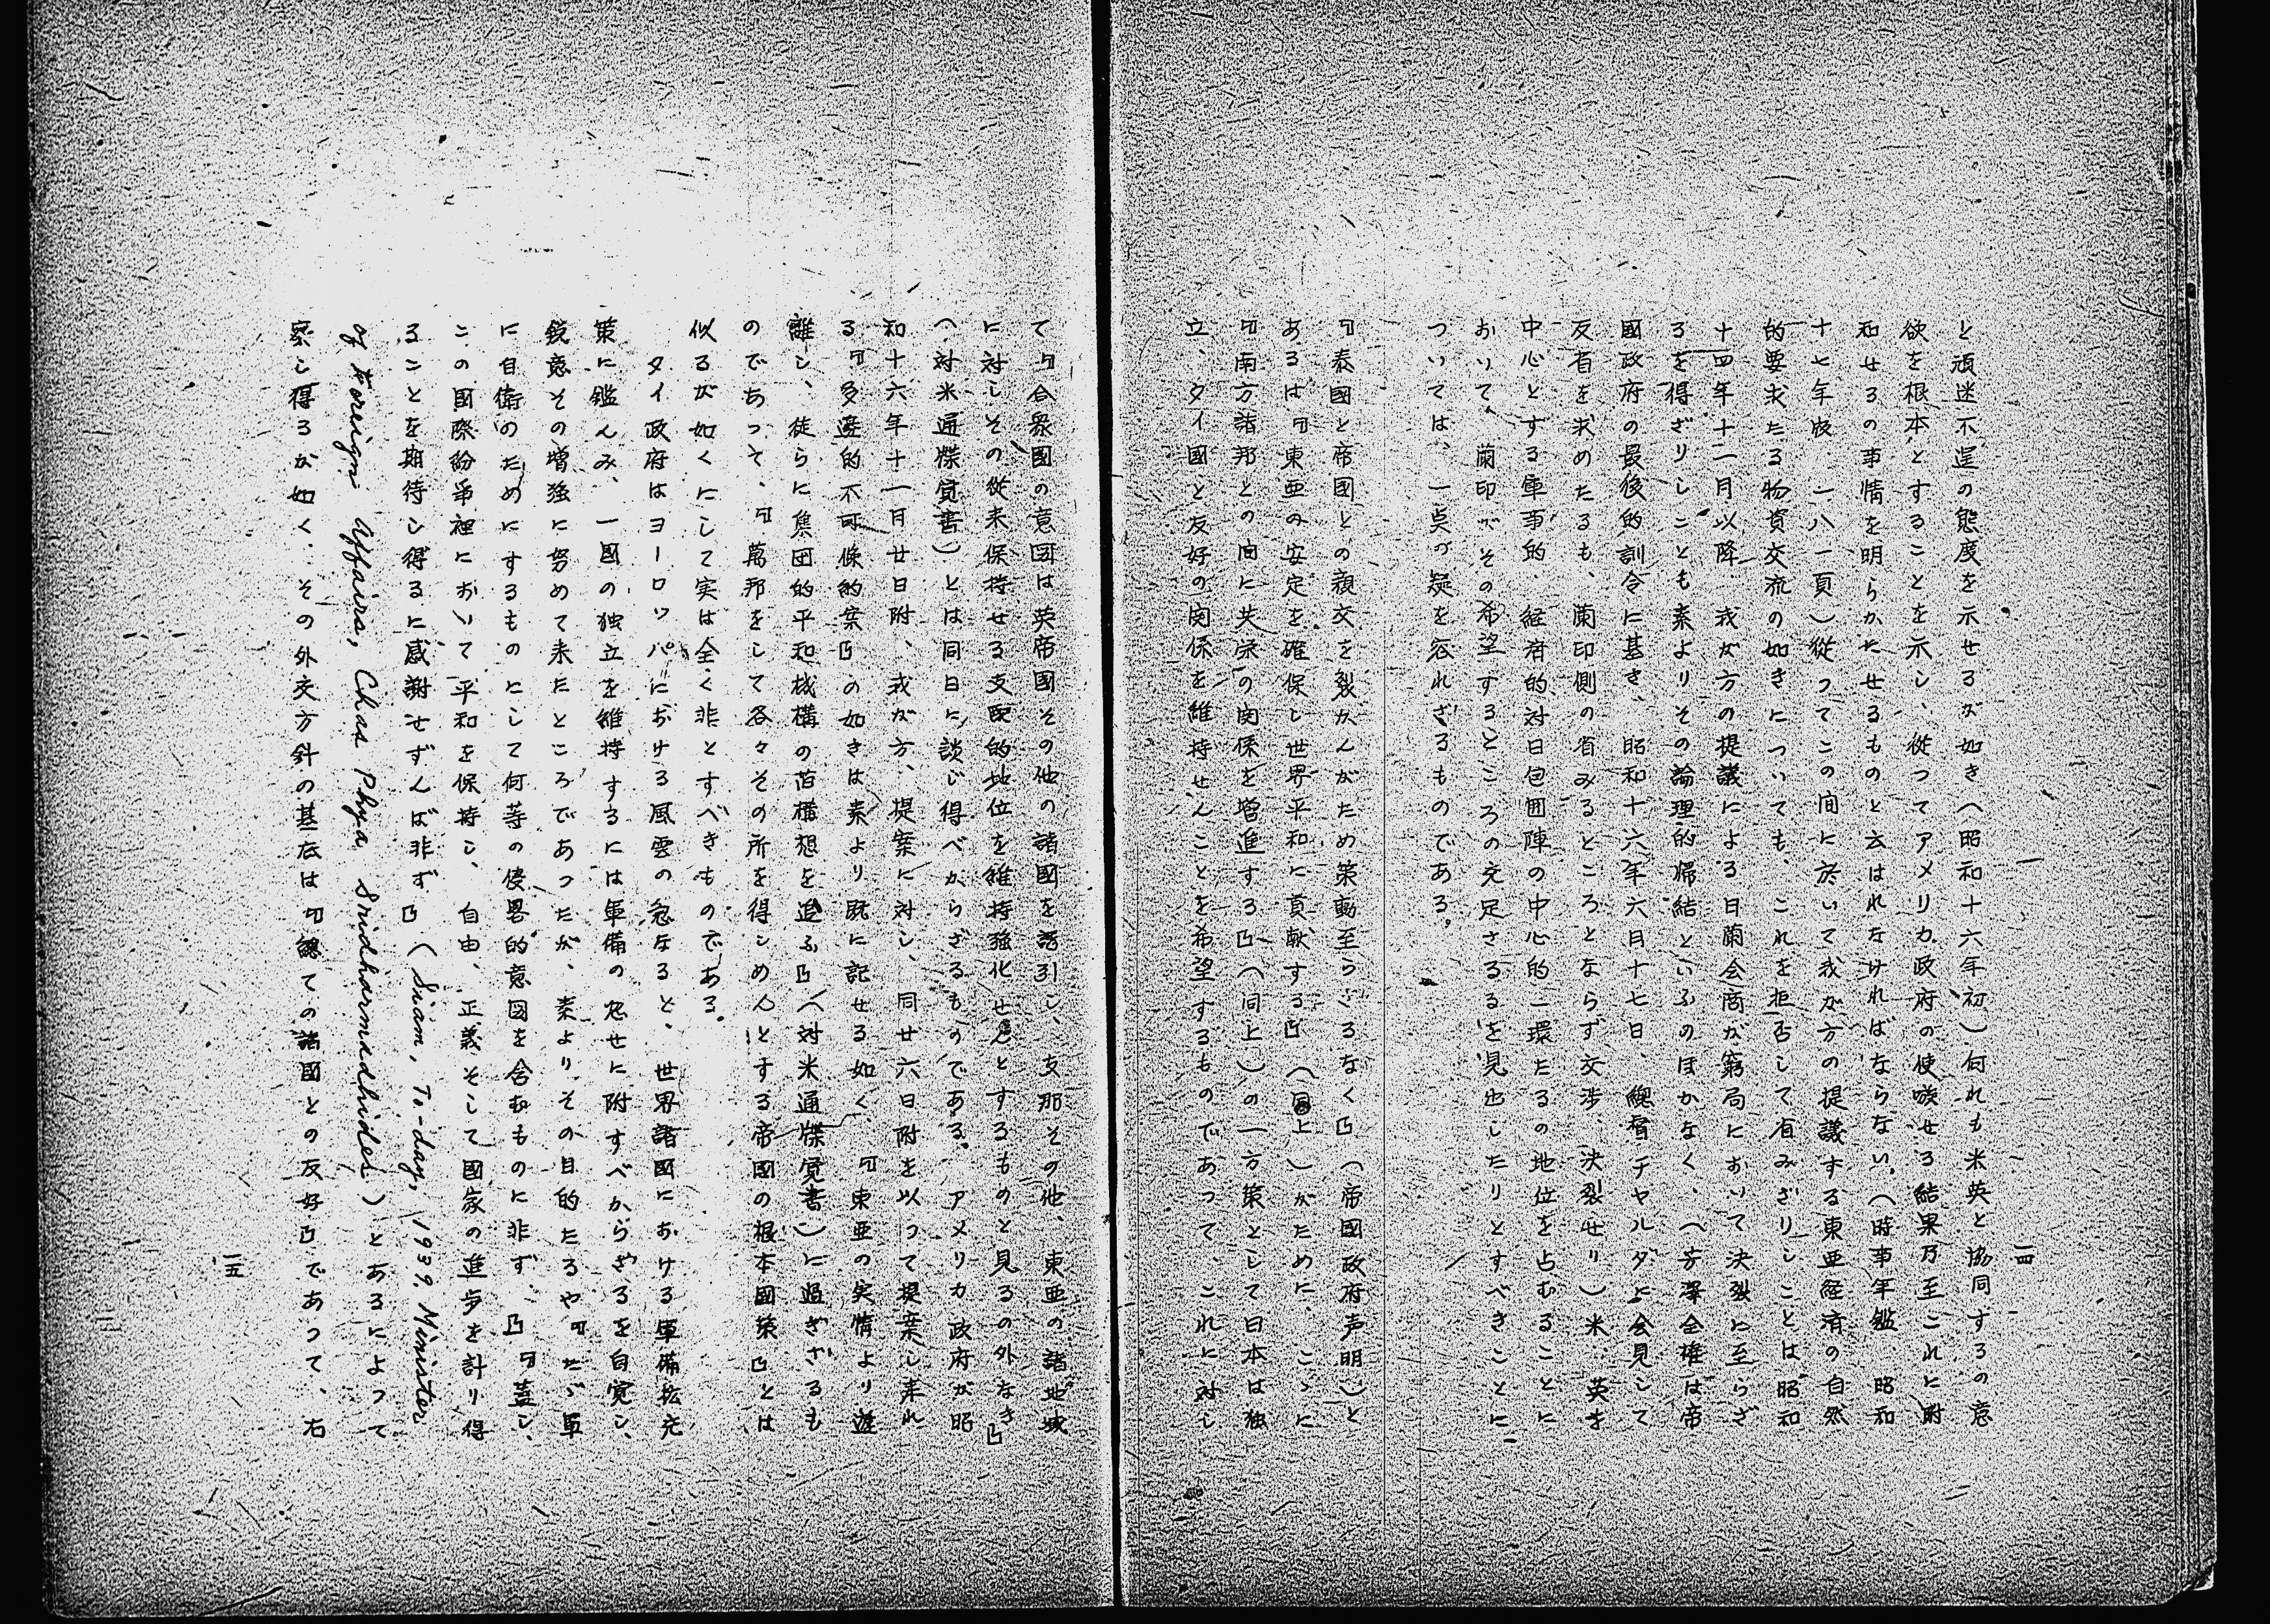 一四
と頑迷不逞の態度を示せるが如き(昭和十六年初)何れも米英と協同するの意
欲を根本とすることを示し、従つてアメリカ政府の使嗾せる結果乃至これに附
和せるの事情を明らかたせるものと云はれなければならない。(時事年鑑、昭和
十七年版、一八一頁)従つてこの間に於いて我が方の提議する東亜経済の自然
的要求たる物資交流の如きについても、これを拒否して省みざりしことは昭和
十四年十二月以降、我が方の提議による日蘭会商が窮局において決裂に至らざ
るを得ざりしことも素よりその論理的帰結といふのほかなく、(芳澤全権は帝
國政府の最後的訓令に基き、昭和十六年六月十七日、總督チャルダに会見して
反省を求めたるも、蘭印側の省みるところとならず交渉、決裂せり)米、英を
中心とする軍事的、経済的対日包囲陣の中心的一環たるの地位を占むることに
おいて、蘭印がその希望するところの充足さるるを見出したりとすべきことに
ついては、一点の疑を容れざるものである。
『泰國と帝國との親交を裂かんがため策動至らざるなく』(帝國政府声明)と
あるは『東亜の安定を確保し世界平和に貢献する』(同上)がために、こゝに
『南方諸邦との間に共栄の関係を増進する』(同上)の一方策として日本は独
立、タイ國と友好の関係を維持せんことを希望するものであって、これに対し
て『合衆國の意図は英帝國その他の諸國を誘引し、支那その他、東亜の諸地域
に対しその従来保持せる支配的地位を維持強化せんとするものと見るの外なき』
(対米通牒覚書)とは同日に談じ得べからざるものである。アメリカ政府が昭
和十六年十一月廿日附、我が方、提案に対し、同廿六日附を以って提案し来れ
る『多邊的不可侵約案』の如きは素より既に記せる如く、『東亜の実情より遊
離し、徒らに集団的平和機構の旧構想を追ふ』(対米通牒覚書)に過ぎざるも
のであって、『萬邦をして各々その所を得しめんとする帝國の根本國策』とは
似るが如くにして実は全く非とすべきものである。
タイ政府はヨーロッパにおける風雲の急なると、世界諸國における軍備拡充
策に鑑んみ、一國の独立を維持するには軍備の忽せに附すべからざるを自覚し、
鋭意その増強に努めて来たところであったが、素よりその目的たるや『たゞ軍
に自衛のためにするものにして何等の侵畧的意図を含むものに非ず、』『蓋し、
この國際紛爭裡において平和を保持し、自由、正義そして國家の進歩を計り得
ることを期待し得るに感謝せずんば非ず』(Siam, To-day, 1939, Minister
of Foreign Affairs, Chao Phya Sridharmadhides)とあるによって
察し得るが如く、その外交方針の基底は『総ての諸國との友好』であって、右
一五